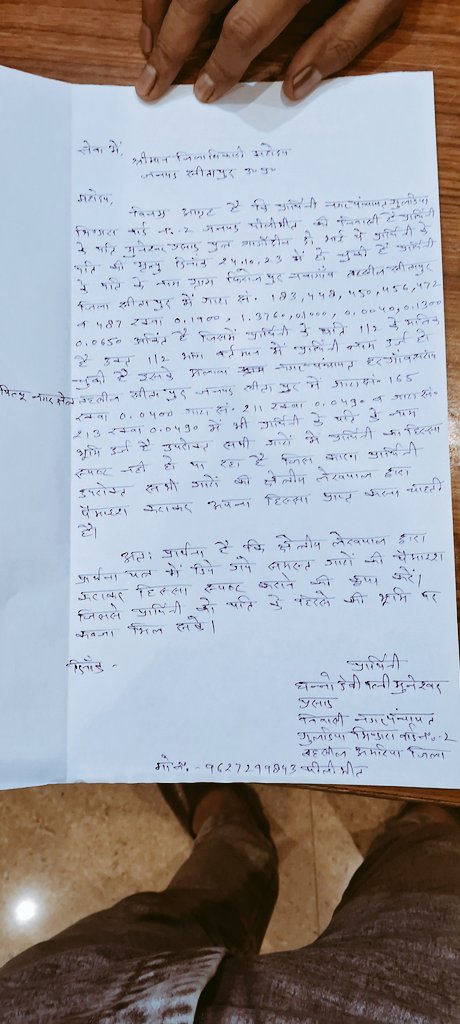 सेवा में,
श्रीमान जिलाधिकारी महोदय
जनपद सीतापुर उ०प्र०
महोदय,
विनम्र आग्रह है कि प्रार्थिनी नगर पंचायत गुलड़िया
भिण्डारा वार्ड नं.-2 जनपद पीलीभीत की निवासी है प्रार्थिनी
के पति मुनेश्वर प्रसाद पुत्र
पति की मृत्यु दिनांक 24.10.23 में हो चुकी है प्रार्थिनी
के पति के नाम ग्राम फिरोजपुर तहसील सीतापुर
जिला सीतापुर में गाटा सं. 183, 448, 450, 456, 472
व 487 रकवा 0.1900, 1.3760, 0.1000, 0.0040, 0.1300
0.0650 अंकित है जिसमें प्रार्थिनी के पति 1/2 के मालिक
है उक्त 1/2 भाग वर्तमान में प्रार्थिनी के नाम दर्ज हो
चुकी है इसके अलावा नगर पंचायत हरगांव
तहसील सीतापुर जनपद सीतापुर में गाटा सं. 165
रकवा 0.0400 गाटा सं. 211 रकवा 0.0490 व गाटा सं.
213 रकवा 0.0490 में भी प्रार्थिनी के पति के नाम
भूमि दर्ज है उपरोक्त सभी गाटों में प्रार्थिनी का हिस्सा
स्पष्ट नहीं हो पा रहा है जिस कारण प्रार्थिनी
उपरोक्त सभी गाटों की क्षेत्रीय लेखपाल द्वारा
पैमाइश कराकर अपना हिस्सा प्राप्त करना चाहती
है।
अतः प्रार्थना है कि क्षेत्रीय लेखपाल द्वारा
प्रार्थना पत्र में दिये गये समस्त गाटों की पैमाइश
कराकर हिस्सा स्पष्ट कराने की कृपा करें।
जिससे प्रार्थिनी को पति के हिस्से की भूमि पर
कब्जा मिल सके।
दिनाँक -
प्रार्थिनी
धन्नो देवी पत्नी मुनेश्वर
प्रसाद
निवासी नगर पंचायत
गुलड़िया भिण्डारा वार्ड नं.-2
तहसील अमरिया जिला
मो० नं. - 9627299843 पीलीभीत